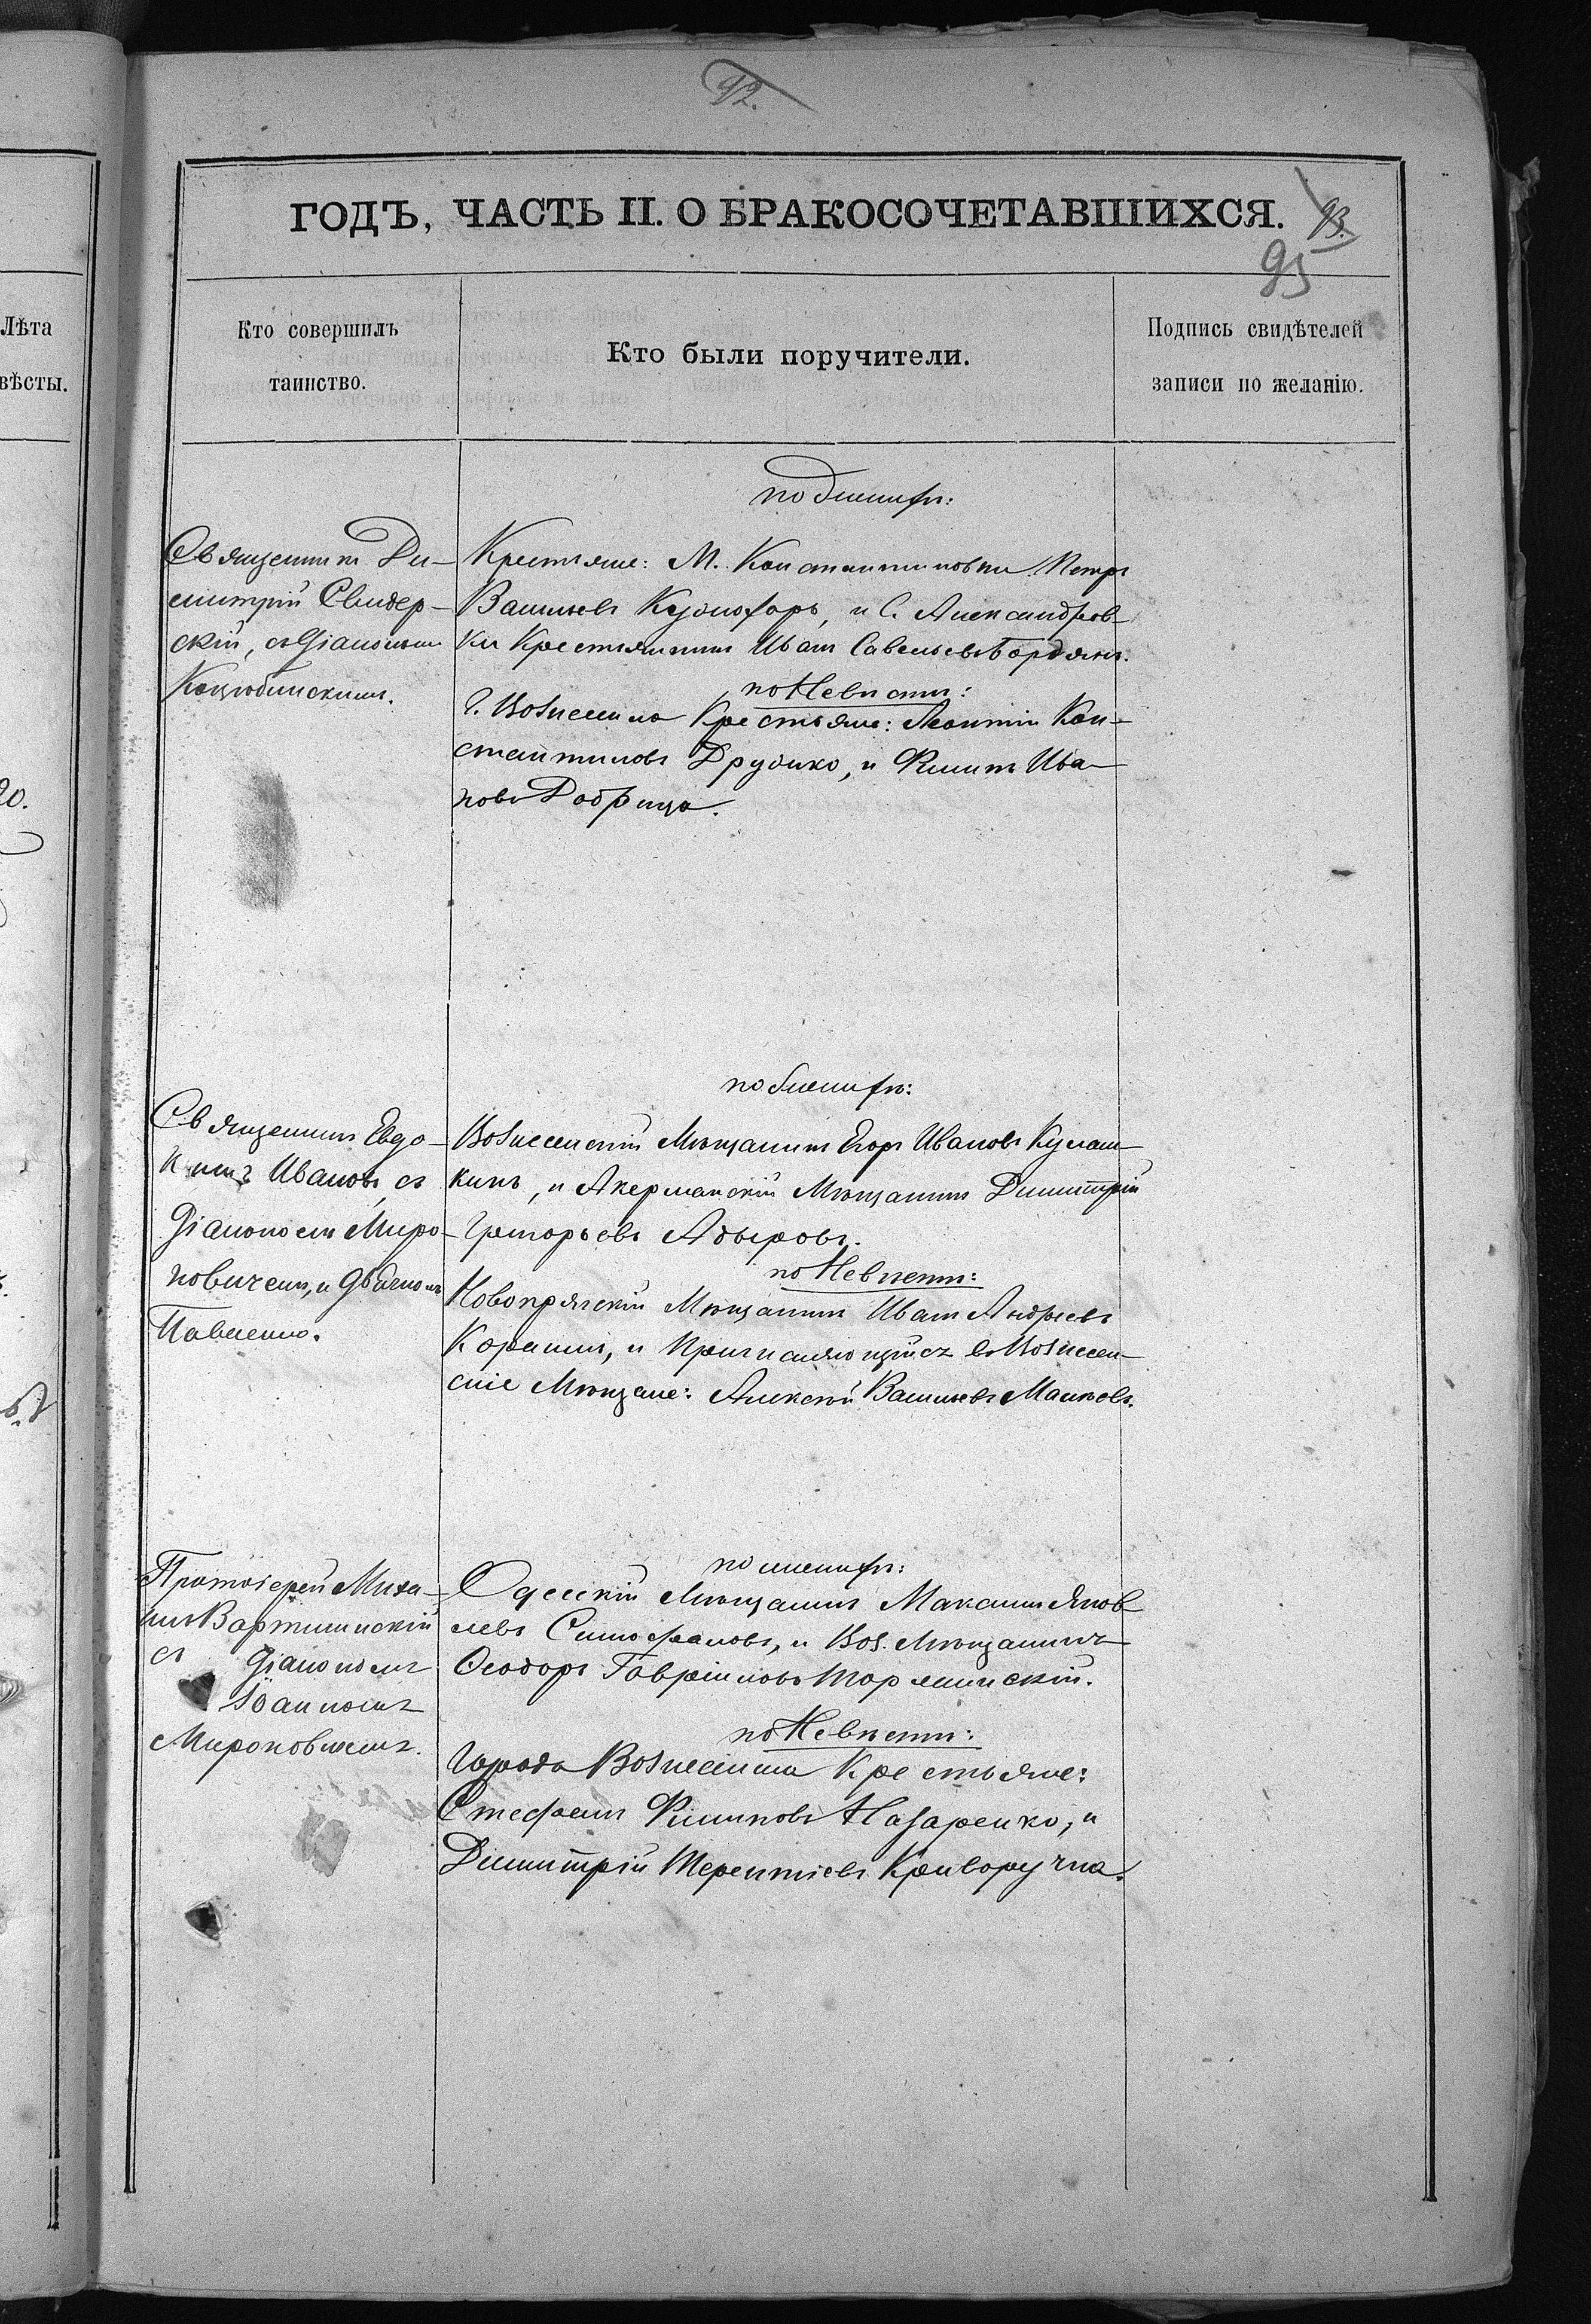 92.
ГОДЪ, ЧАСТЬ II. О БРАКОСОЧЕТАВШИХСЯ.
93.
95
Лѣта
вѣсты.
Кто совершилъ
таинство.
Кто были поручители.
Подпись свидѣтелей
записи по желанію.
20.
Священникъ Ди-
митрій Свидер-
скій, съ Діакономъ
Коцюбинскимъ.
по Женихѣ:
Крестьяне: М. Константиновки Петръ
Васильевъ, и С. Александров-
ки Крестьянинъ Иванъ Савельевъ Бордянъ.
по Невѣстѣ:
г. Вознесенска Крестьяне: Леонтій Кон-
стантиновъ, и Филипъ Ива-
новъ Добрица.
Священникъ Евдо-
кимъ Ивановъ, съ
Діакономъ Миро-
новичемъ, и
Павленко.
по Женихѣ:
Вознесенскій Мѣщанинъ Егоръ Ивановъ Кулаш-
кинъ, и Акерманскій Мѣщанинъ Димитрій
Григорьевъ Адыровъ.
по Невѣстѣ:
Мѣщанинъ Иванъ Андреевъ
и въ Вознесен-
скіе Мѣщане: Алексѣй Васильевъ
Протоіерей Миха-
илъ Вартминскій
съ Діакономъ
Іоанномъ
Мироновичемъ.
по Женихѣ:
Одесскій Мѣщанинъ Максимъ Яков-
левъ, и Воз. Мѣщанинъ
Ѳеодоръ Гавріиловъ
по Невѣстѣ:
Города Вознесенска Крестьяне:
Стефанъ Филиповъ Назаренко, и
Димитрій Терентіевъ Криворучка.